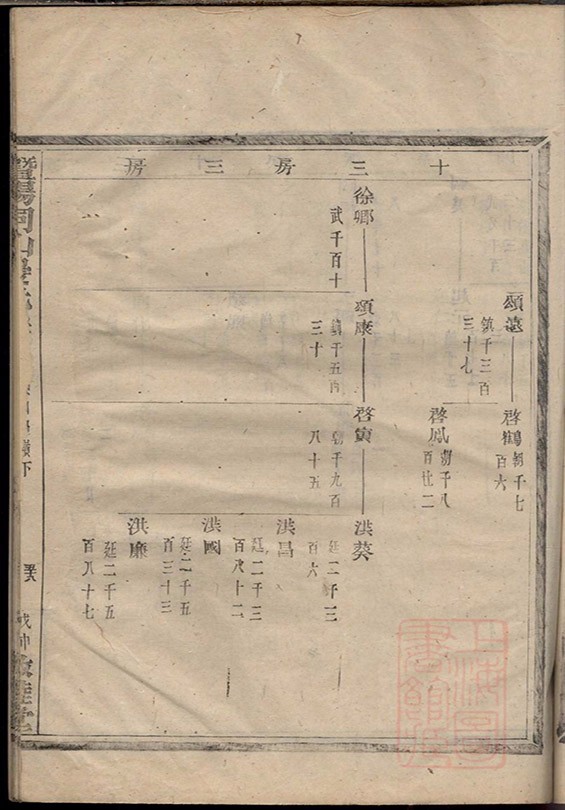 十三房三房
頌遠
鎮千三百
三十七
啓鶴
朝千七
百六
啓鳳
朝千八
百廿二
徐卿
武千百十
頌康
鎮千五百
三十
啓寅
朝千九百
八十五
洪葵
廷二千三
百六
洪昌
廷二千三
百八十二
洪國
廷二千五
百三十三
洪廉
廷二千五
百八十七
暨陽
下